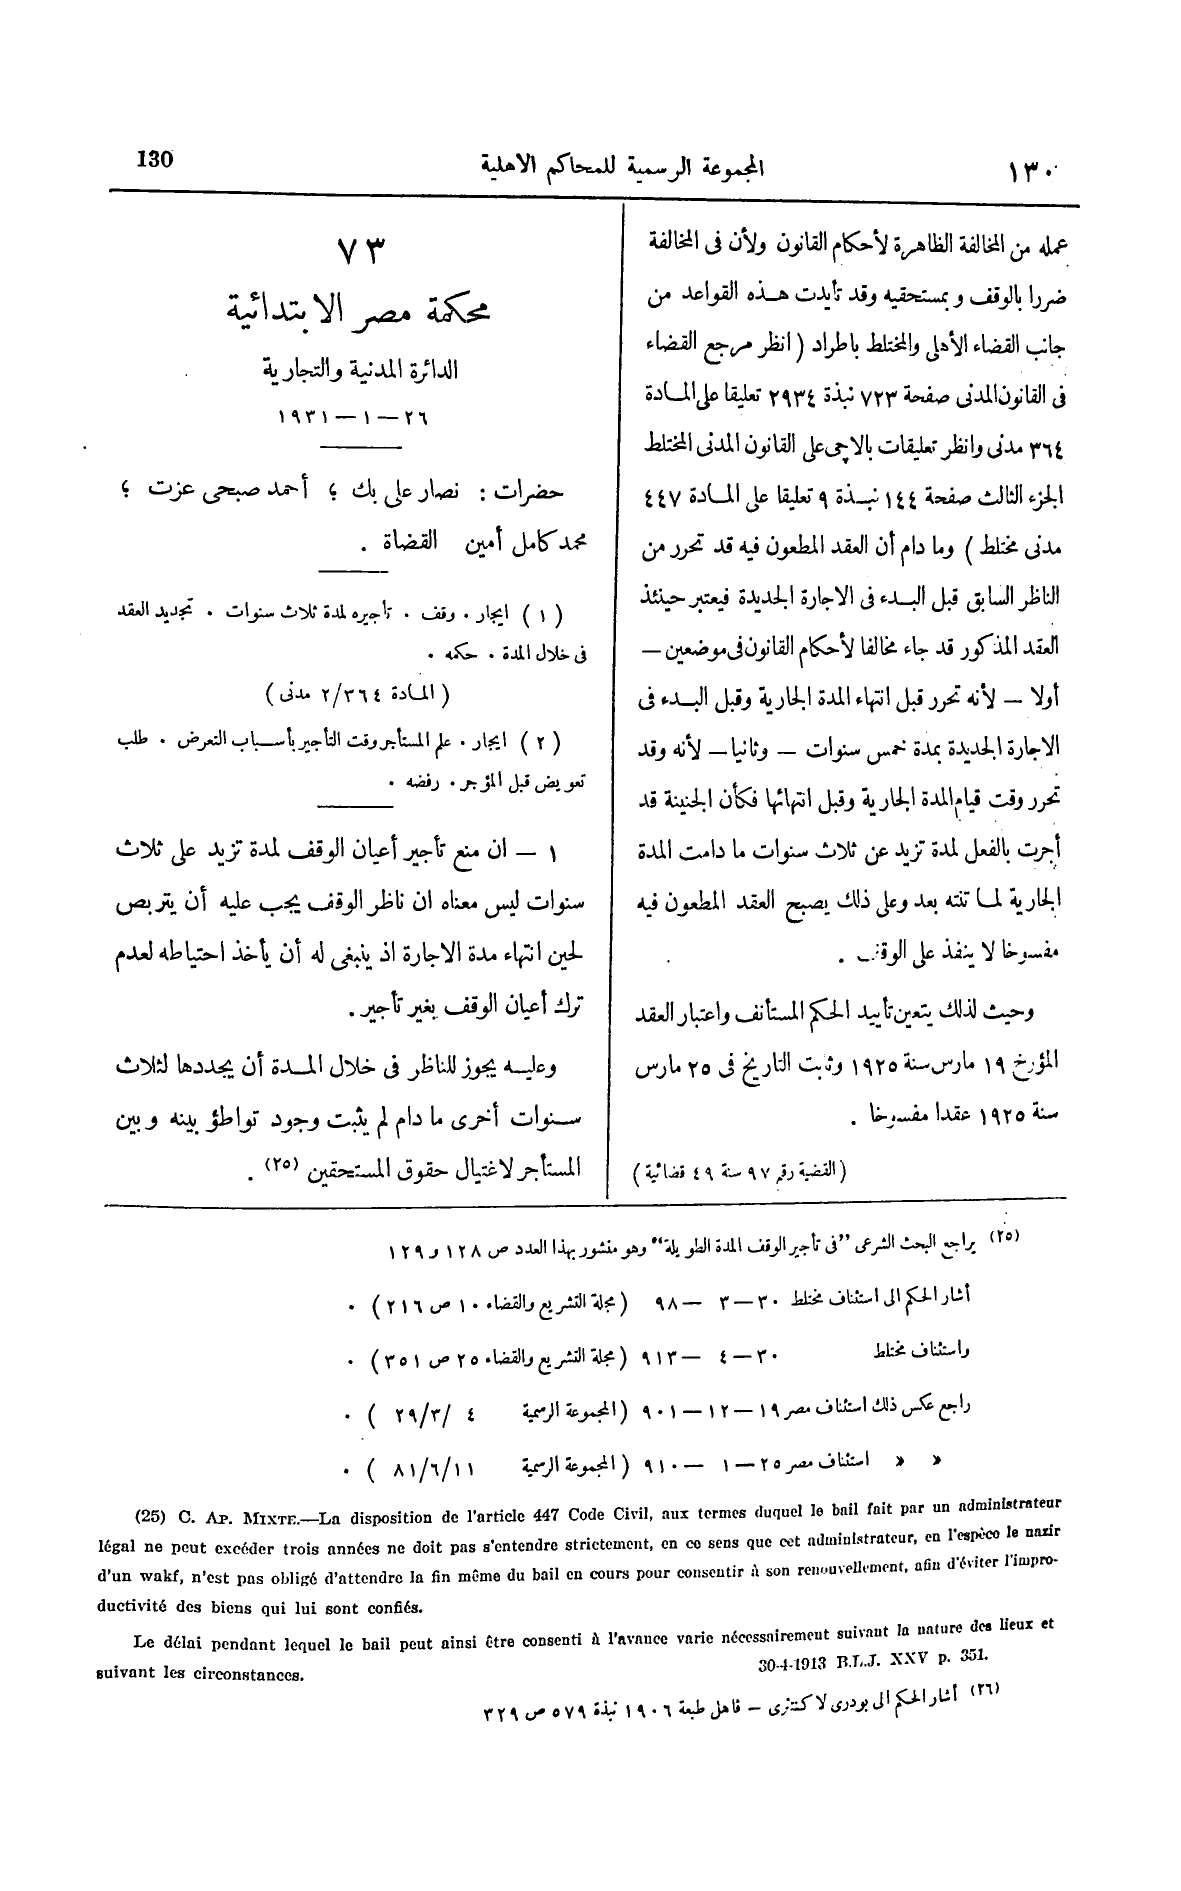 ١٣٠ المجموعة الرسمية للمحاكم الاهلية 130
عمله من المخالفة الظاهرة لأحكام القانون ولأن فى المخالفة
ضررا بالوقف وبمستحقيه وقد تأيدت هذه القواعد من
جانب القضاء الأهلى والمختلط باطراد ( انظر مرجع القضاء
فى القانون المدنى صفحة ٧٢٣ نبذة ٢٩٣٤ تعليقا على المادة
٣٦٤ مدنى وانظر تعليقات بالاچى على القانون المدنى المختلط
الجزء الثالث صفحة ١٤٤ نبذة ٩ تعليقا على المادة ٤٤٧
مدنى مختلط ) وما دام أن العقد المطعون فيه قد تحرر من
الناظر السابق قبل البدء فى الاجارة الجديدة فيعتبر حينئذ
العقد المذكور قد جاء مخالفا لأحكام القانون فى موضعين —
أولا — لأنه تحرر قبل انتهاء المدة الجارية وقبل البدء فى
الاجارة الجديدة بمدة خمس سنوات — وثانيا — لأنه وقد
تحرر وقت قيام المدة الجارية وقبل انتهائها فكأن الجنينة قد
أجرت بالفعل لمدة تزيد عن ثلاث سنوات ما دامت المدة
الجارية لما تنته بعد وعلى ذلك يصبح العقد المطعون فيه
مفسوخا لا ينفذ على الوقف .
وحيث لذلك يتعين تأييد الحكم المستأنف واعتبار العقد
المؤرخ ١٩ مارس سنة ١٩٢٥ وثابت التاريخ فى ٢٥ مارس
سنة ١٩٢٥ عقدا مفسوخا .
( القضية رقم ٩٧ سنة ٤٩ قضائية )
٧٣
محكمة مصر الابتدائية
الدائرة المدنية والتجارية
٢٦ — ١ — ١٩٣١
حضرات : نصار على بك ؛ أحمد صبحى عزت ؛
محمد كامل أمين القضاة .
( ١ ) ايجار . وقف . تأجيره لمدة ثلاث سنوات . تجديد العقد
فى خلال المدة . حكمه .
( المادة ٢/٣٦٤ مدنى )
( ٢ ) ايجار . علم المستأجر وقت التأجير بأسباب التعرض . طلب
تعويض قبل المؤجر . رفضه .
١ — ان منع تأجير أعيان الوقف لمدة تزيد على ثلاث
سنوات ليس معناه ان ناظر الوقف يجب عليه أن يتربص
لحين انتهاء مدة الاجارة اذ ينبغى له أن يأخذ احتياطه لعدم
ترك أعيان الوقف بغير تأجير .
وعليه يجوز للناظر فى خلال المدة أن يجددها لثلاث
سنوات أخرى ما دام لم يثبت وجود تواطؤ بينه وبين
المستأجر لاغتيال حقوق المستحقين (٢٥) .
(٢٥) يراجع البحث الشرعى "فى تأجير الوقف المدة الطويلة" وهو منشور بهذا العدد ص ١٢٨ و ١٢٩
أشار الحكم الى استئناف مختلط ٣٠ — ٣ — ٩٨ ( مجلة التشريع والقضاء ١٠ ص ٢١٦ ) .
واستئناف مختلط ٣٠ — ٤ — ٩١٣ ( مجلة التشريع والقضاء ٢٥ ص ٣٥١ ) .
راجع عكس ذلك استئناف مصر ١٩ — ١٢ — ٩٠١ ( المجموعة الرسمية ٤ /٢٩/٣ ) .
« « استئناف مصر ٢٥ — ١ — ٩١٠ ( المجموعة الرسمية ٨١/٦/١١ ) .
(25) C. AP. MIXTE.—La disposition de l'article 447 Code Civil, aux termes duquel le bail fait par un administrateur
légal ne peut excéder trois années ne doit pas s'entendre strictement, en ce sens que cet administrateur, en l'espèce le nazir
d'un wakf, n'est pas obligé d'attendre la fin même du bail en cours pour consentir à son renouvellement, afin d'éviter l'impro-
ductivité des biens qui lui sont confiés.
Le délai pendant lequel le bail peut ainsi être consenti à l'avance varie nécessairement suivant la nature des lieux et
suivant les circonstances. 30-4-1913 B.L.J. XXV p. 351.
(٢٦) أشار الحكم الى بودرى لاكنتنرى — فاهل طبعة ١٩٠٦ نبذة ٥٧٩ ص ٣٢٩